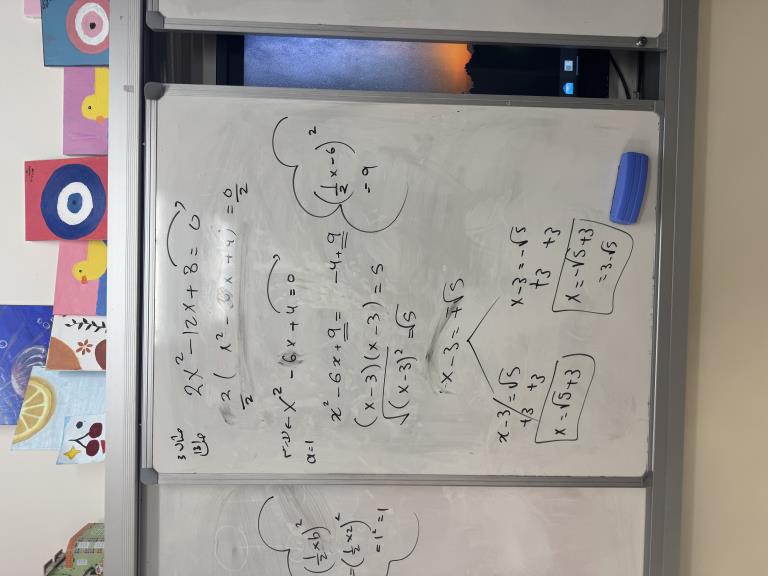 مثال 3
2x² - 12x + 8 = 0
2 ( x² - 6x + 4) = 0
/2 /2
x² - 6x + 4 = 0
a = 1
x² - 6x + 9 = -4 + 9
(x - 3)(x - 3) = 5
√(x - 3)² = √5
x - 3 = ∓√5
x - 3 = √5
+3 +3
x = √5 + 3
x - 3 = -√5
+3 +3
x = -√5 + 3
= 3 - √5
(1/2 x - 6)²
= 9
(1/2 x b)²
= (1/2 x 2)²
= 1² = 1